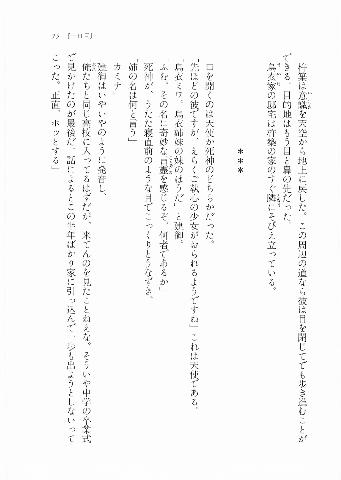 杵築は意識を天空から地上に戻した。この周辺の道なら彼は目を閉じてでも歩き進むことが
できる。目的地はもう目と鼻の先だった。
烏衣家の邸宅は杵築の家のすぐ隣にそびえ立っている。
***
口を開くのは天使か死神のどちらかだった。
「先ほどの彼ですが、えらくご執心の少女がおられるようですね」これは天使である。
「烏衣ミワ。烏衣姉妹の妹のほうだ」と建御。
「ふむ。その名に奇妙な言霊を感じるぞ。何者であるか」
死神が、うたた寝直前のような目でこっくりとうなずき、
「姉の名は何と言う」
「カミナ」
建御はいやいやのように発音し、
「俺たちと同じ高校に入ってるはずだが、来てんのを見たことねえな。そういや中学の卒業式
で見かけたのが最後だ。話によるとこの半年ばかり家に引っ込んで一歩も出ようとしないって
こった。正直、ホッとする」